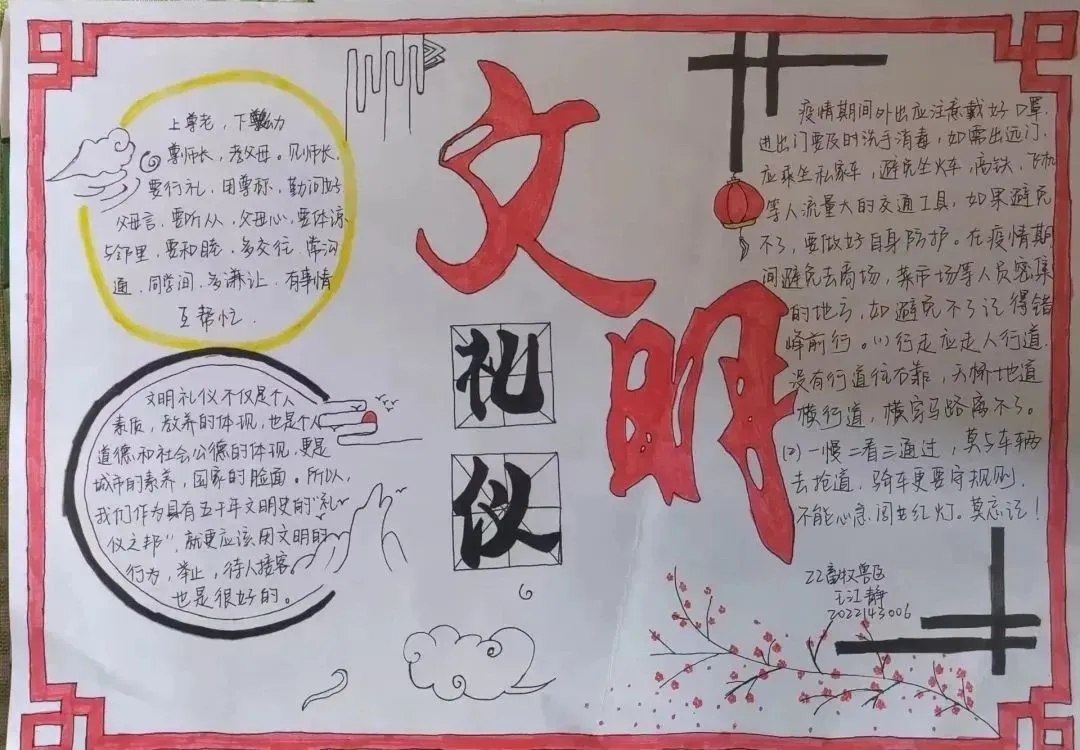 文明
礼
仪
上尊老，下尊幼
尊师长，孝父母。见师长，
要行礼，用尊称，勤问好
父母言，要听从，父母心，要体谅
与邻里，要和睦，多交往，常沟
通，同学间，多谦让，有事情
互帮忙．
文明礼仪不仅是个人
素质，教养的体现，也是个人
道德和社会公德的体现，更是
城市的素养，国家的脸面。所以，
我们作为具有五千年文明史的“礼
仪之邦”，就更应该用文明的
行为，举止，待人接客。
也是很好的。
疫情期间外出应注意戴好口罩，
进出门要及时洗手消毒，如需出远门，
应乘坐私家车，避免坐火车，高铁，飞机
等人流量大的交通工具，如果避免
不了，要做好自身防护。在疫情期
间避免去商场，菜市场等人员密集
的地方，如避免不了记得错
峰前行。(1)行走应走人行道，
没有行道往右靠，天桥地道
横行道，横穿马路离不了。
(2)一慢二看三通过，莫与车辆
去抢道，骑车更要守规则，
不能心急闯红灯。莫忘记！
22畜牧兽医
王江静
2022143006